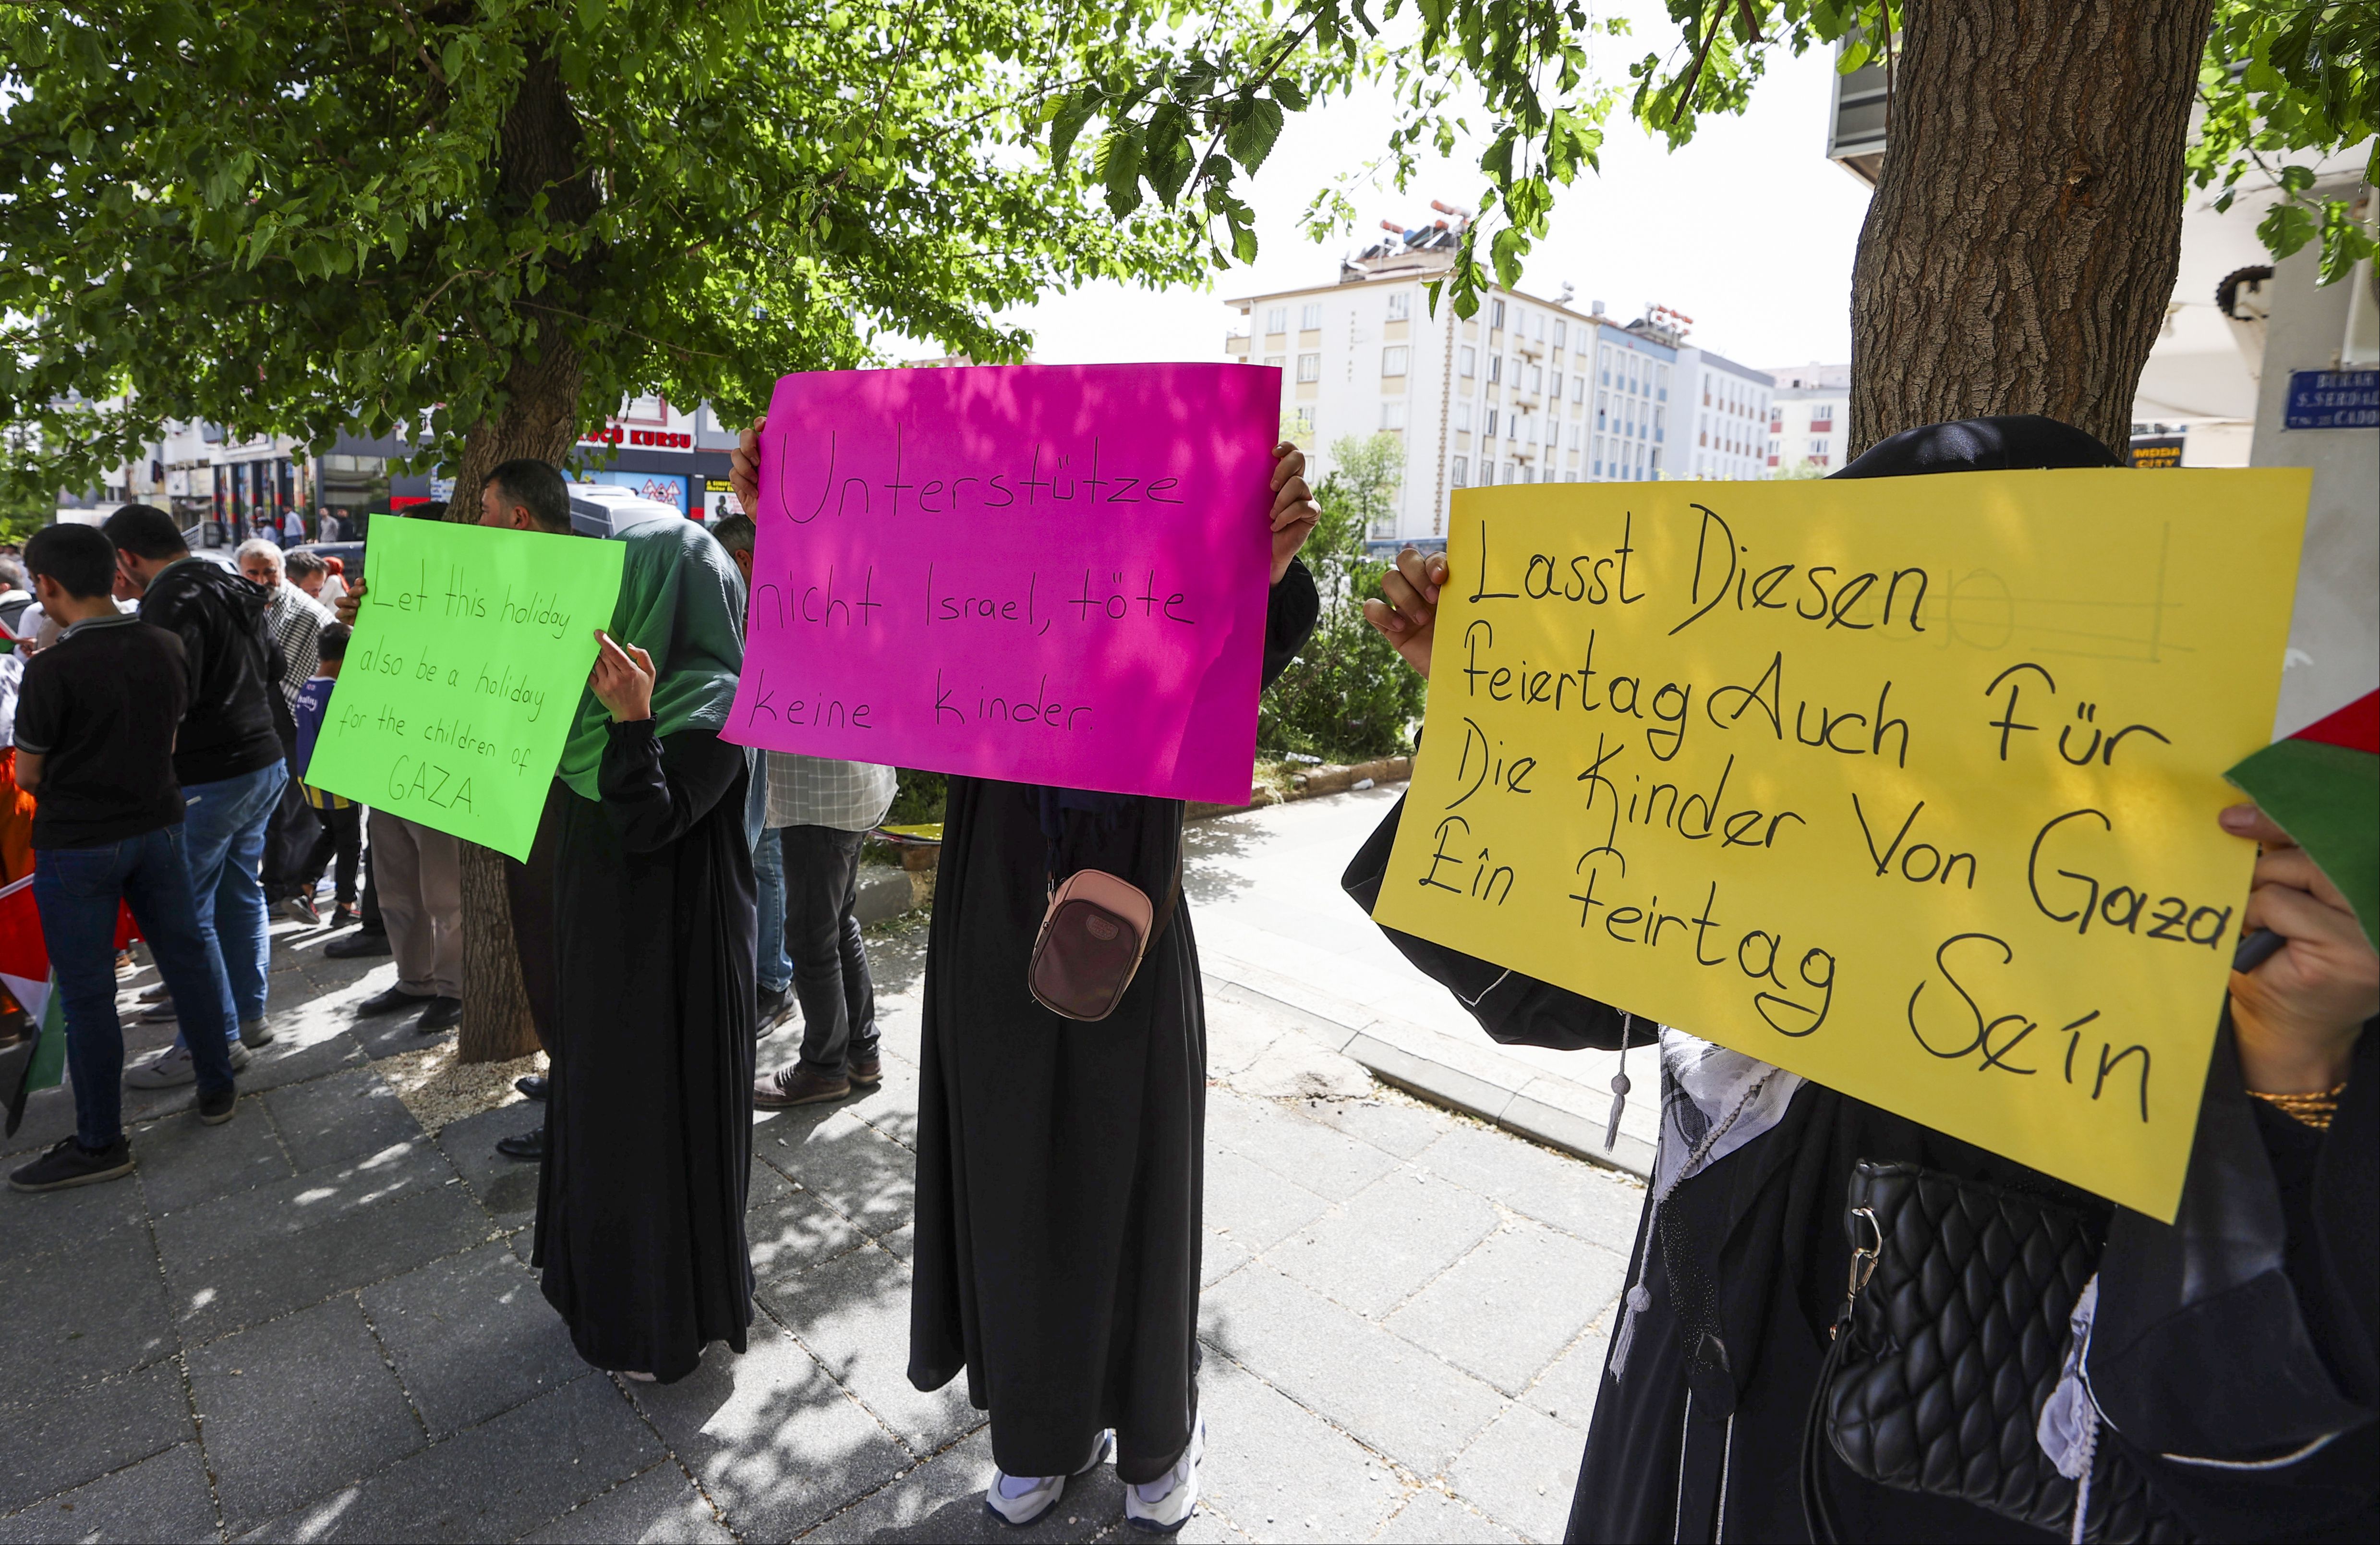 Let this holiday
also be a holiday
for the children of
GAZA.
Unterstütze
nicht Israel, töte
keine Kinder.
Lasst Diesen
Feiertag Auch Für
Die Kinder Von Gaza
Eîn Feirtag Seín
KURSU
MODA
CITY